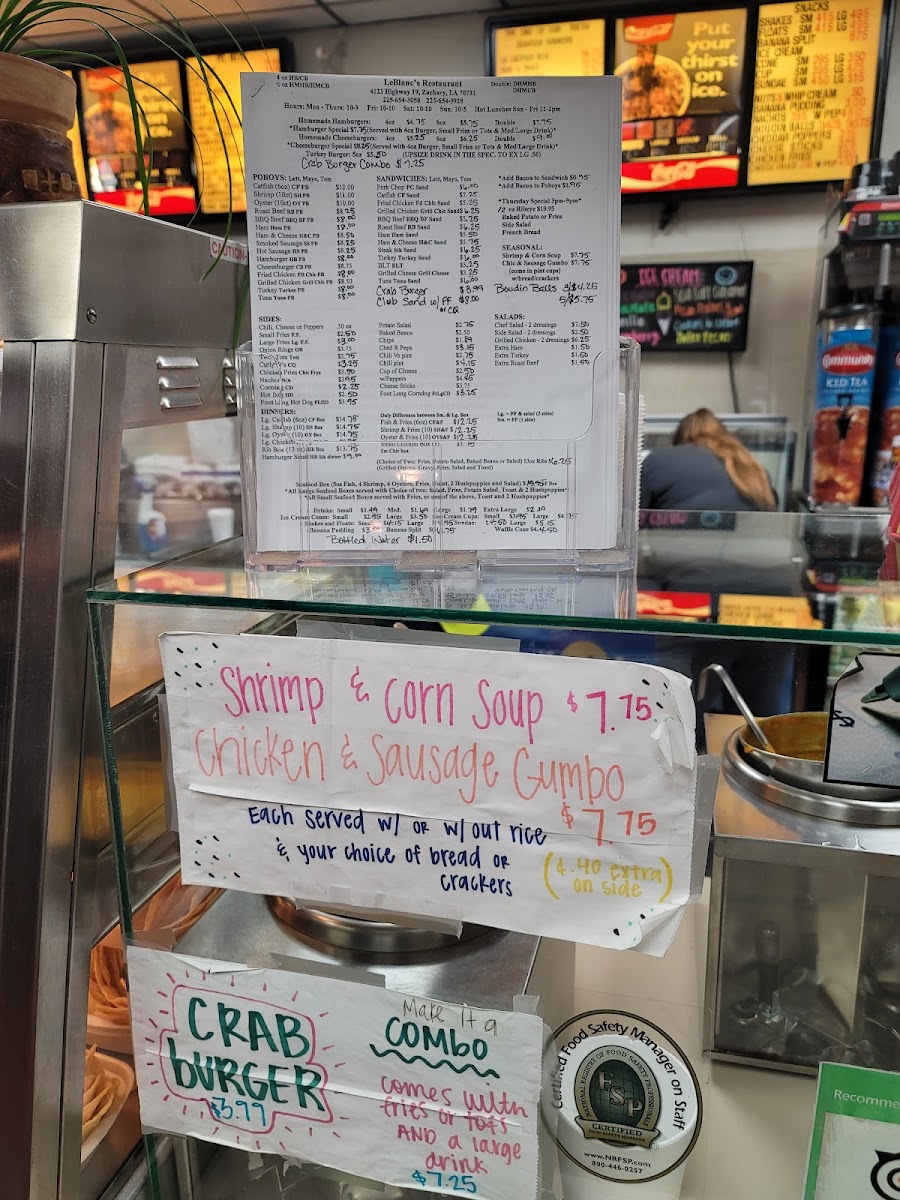 Put
your
thirst
on
ice.
Coca-Cola
SNACKS
SHAKES SM 415 LG 495
FLOATS SM 415 LG
BANANA SPLIT
ICE CREAM
CONE
CUP
SUNDAE
NUTS & WHIP CREAM
BANANA PUDDING
NACHOS
BOUDIN BALLS
CAUTION
LeBlanc's Restaurant
4123 Highway 19, Zachary, LA 70791
225-654-3058 225-654-3928
Hours: Mon - Thurs: 10-9 Fri: 10-10 Sat: 10-10 Sun: 10-5 Hot Lunches Sun - Fri 11-2pm
4 oz HB/CB
Double: DHMHB
DHMCB
Homemade Hamburgers: 4oz $4.75 6oz $5.75 Double $7.75
*Hamburger Special $7.75 (Served with 4oz Burger, Small Fries or Tots & Med/Large Drink)*
Homemade Cheeseburgers: 4oz $5.25 6oz $6.25 Double $9.00
*Cheeseburger Special $8.25 (Served with 4oz Burger, Small Fries or Tots & Med/Large Drink)*
Turkey Burger: 5oz $5.50 (UPSIZE DRINK IN THE SPEC. TO EX LG .50)
Crab Burger Combo $7.25
POBOYS: Lett, Mayo, Tom
Catfish (6oz) CF PB $10.00
Shrimp (10ct) SH PB
Oyster (10ct) OY PB $10.00
Roast Beef RB PB $8.25
BBQ Beef BBQ BF PB $8.00
Ham Ham PB $8.00
Ham & Cheese H&C PB $8.50
Smoked Sausage SS PB $8.25
Hot Sausage HS PB $8.25
Hamburger HB PB $8.00
Cheeseburger CB PB $8.75
Fried Chicken FD Chic PB $8.00
Grilled Chicken Grill Chic PB $8.50
Turkey Turkey PB $8.00
Tuna Tuna PB $8.00
SANDWICHES: Lett, Mayo, Tom
Pork Chop PC Sand $6.00
Catfish CF Sand $7.25
Fried Chicken Fd Chic Sand $5.25
Grilled Chicken Grill Chic Sand $6.25
BBQ Beef BBQ BF Sand $5.25
Roast Beef RB Sand $6.25
Ham Ham Sand $5.50
Ham & Cheese H&C Sand $5.75
Steak Stk Sand $6.25
Turkey Turkey Sand $6.00
BLT BLT $5.25
Grilled Cheese Grill Cheese $3.25
Tuna Tuna Sand $6.00
Crab Burger $3.99
Club Sand w/ FF $8.00
or CQ
*Add Bacon to Sandwich $0.95*
*Add Bacon to Poboys $1.95*
*Thursday Special 3pm-9pm*
12 oz Ribeye $19.95
Baked Potato or Fries
Side Salad
French Bread
SEASONAL:
Shrimp & Corn Soup $7.75
Chic & Sausage Gumbo $7.75
(come in pint cups)
w/bread/crackers
Boudin Balls 3/$4.25
5/$5.75
SIDES:
Chili, Cheese or Peppers .50 ea
Small Fries F.F. $2.50
Large Fries Lg. F.F. $3.00
Onion Rings OR $3.75
Tots $2.75
Curly Q's CQ $3.25
Chicken Fries Chic Frys $3.50
Nachos N/A $1.95
Corndog CD $2.25
Hot Dog HD $2.50
Foot Long Hot Dog FLHD $3.95
Potato Salad $2.75
Baked Beans $2.50
Chips $1.89
Ched R Peps $3.15
Chili 1/2 pint $2.75
Chili pint $4.15
Cup of Cheese $2.50
w/Peppers $4.95
Cheese Sticks $3.75
Foot Long Corndog FLCD $3.25
SALADS:
Chef Salad - 2 dressings $7.50
Side Salad - 2 dressings $2.50
Grilled Chicken - 2 dressings $6.25
Extra Ham $1.50
Extra Turkey $1.50
Extra Roast Beef $1.50
DINNERS:
Lg. Catfish (6oz) CF Box $14.75
Lg. Shrimp (10) SH Box $14.75
Lg. Oyster (10) OY Box $14.75
Lg. Chicken
Rib Box (13 oz) Rib Box $13.75
Hamburger Steak HB Stk dinner $9.00
Only Difference between Sm. & Lg. Box
Fish & Fries (6oz) CF&F $12.25
Shrimp & Fries (10) SH&F $12.25
Oyster & Fries (10) OYS&F $12.25
Sm Chic box
Lg. = FF & salad (2 sides)
Sm. = FF (1 side)
(Choice of Two: Fries, Potato Salad, Baked Beans or Salad)
(Grilled Onions, Gravy, Fries, Salad and Toast)
Seafood Box (5oz Fish, 4 Shrimp, 4 Oysters, Fries, Toast, 2 Hushpuppies and Salad)
*All Large Seafood Boxes served with Choice of two: Salad, Fries, Potato Salad, Toast & 2 Hushpuppies*
*All Small Seafood Boxes served with Fries, or one of the above, Toast and 2 Hushpuppies*
Drinks: Small $1.49 Med. $1.69 Large $1.79 Extra Large $2.10
Ice Cream Cones: Small $2.95 Large $3.50 Ice Cream Cups: Small Large
Shakes and Floats: Small $4.15 Large $4.95 Sundae: $4.50 Large $5.15
Banana Pudding Banana Split Waffle Cone $4.50
Bottled Water $1.50
ICE CREAM
Community
ICED TEA
Shrimp & Corn Soup $7.75
Chicken & Sausage Gumbo
$7.75
Each served w/ or w/out rice
& your choice of bread or
crackers
(4.40 extra
on side)
CRAB
BURGER
$3.99
Make it a
COMBO
comes with
fries or tots
AND a large
drink
$7.25
Certified Food Safety Manager on Staff
NATIONAL REGISTRY OF FOOD SAFETY PROFESSIONALS
FSP
CERTIFIED
FOOD SAFETY MANAGER
www.NRFSP.com
800-446-0257
Recomme